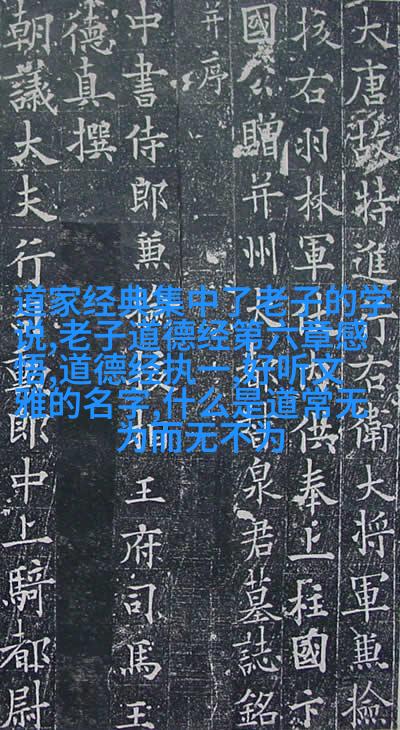 大唐故特進行右衛大將軍兼檢
校右羽林軍供奉上柱國卞
國公贈并州大都督泉君墓誌銘
并序
中書侍郎兼檢校相王府司馬王
德真撰
朝議大夫行司勳郎中上騎都尉
道家经典集中了老子的学
说,老子道德经第六章感
悟,道德经执一,好听文
雅的名字,什么是道常无
为而无不为